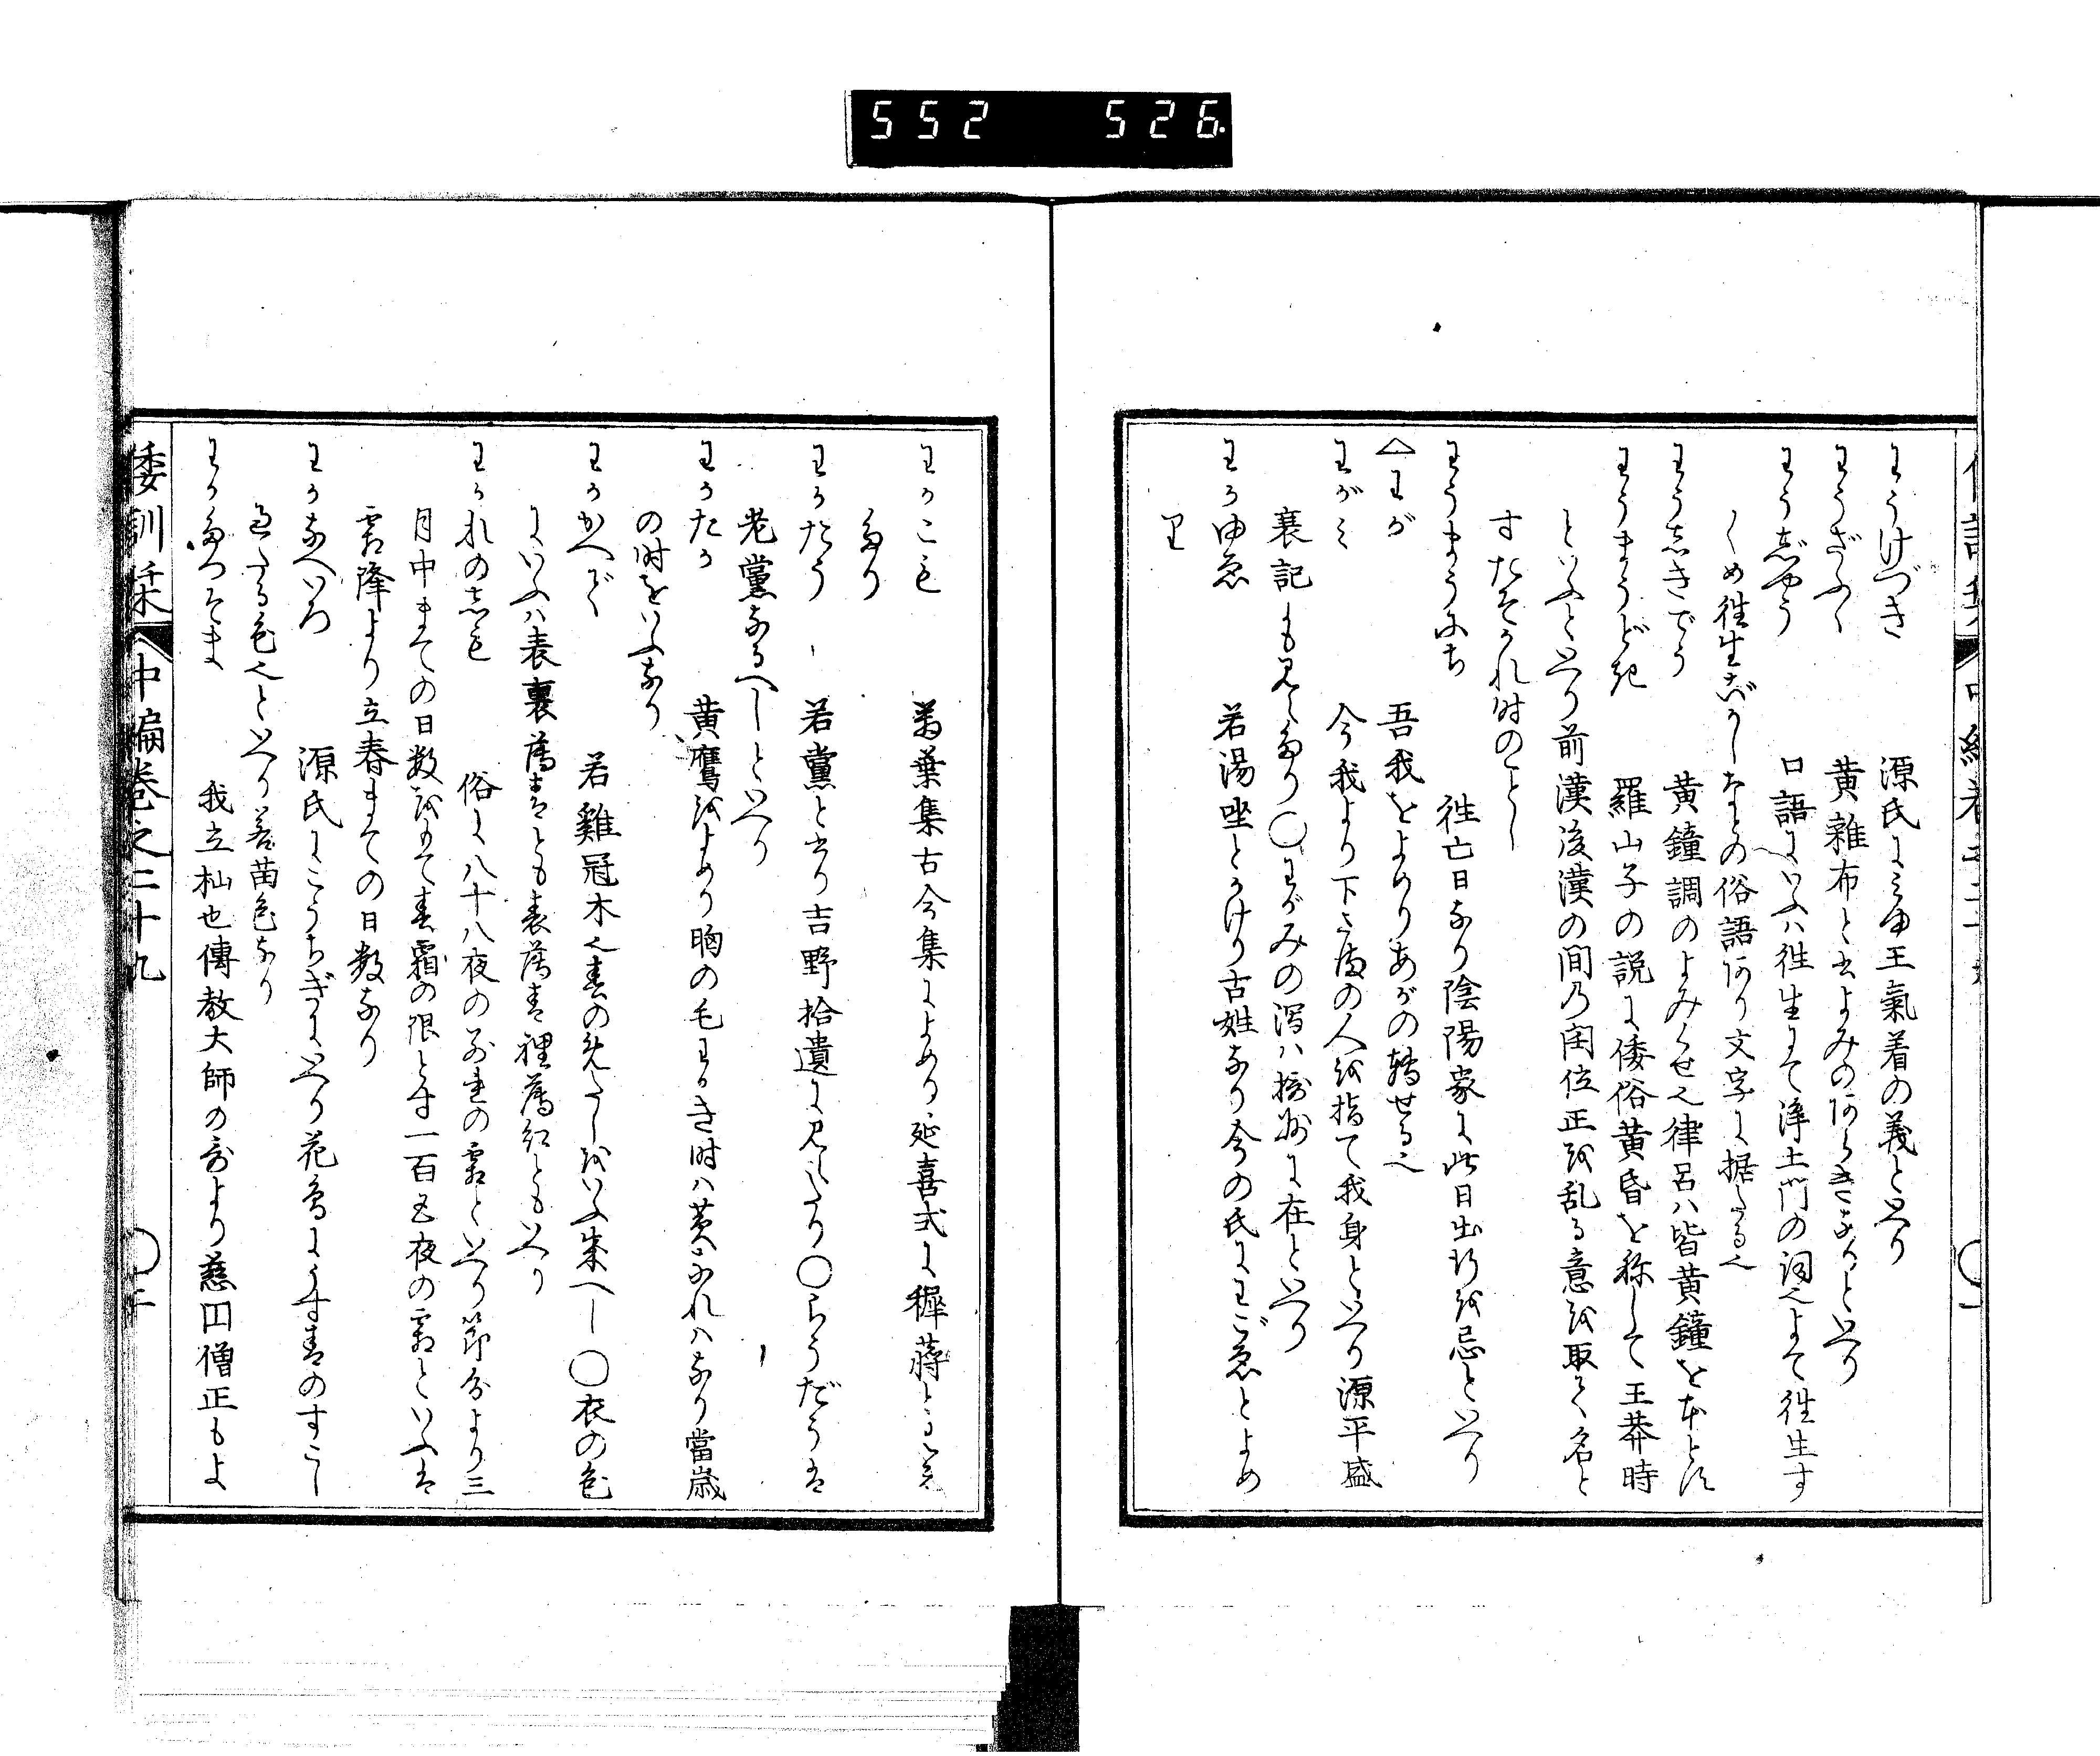 552 526
わうけづき 源氏にミゆ王氣着の義といへり
わうざふふ 黄雑布と書よみのあらきをいふといへり
わうじやう 口語にいふハ往生にて浄土門の詞也よて往生す
くめ往生ばかしなとの俗語あり文字に据たる也
わうしきでう 黄鐘調のよみくせ也律呂ハ皆黄鐘を本とす
わうまうどき 羅山子の説に倭俗黄昏を称して王莽時
といふといへり前漢後漢の間乃閏位正を乱る意を取て名と
すたそかれ時のことし
わうまうにち 往亡日なり陰陽家に此日出行を忌といへり
△わが 吾我をよめりあがの轉せる也
わがミ 今我より下さまの人を指て我身といへり源平盛
衰記にも見えたり○わがみの瀉ハ摂州に在といへり
わかゆゑ 若湯坐とかけり古姓なり今の氏にわごゑとよめ
り
わかこも 萬葉集古今集によめり延喜式に穉蒋とミえ
たり
わかたう 若黨と書り吉野拾遺に見えたり○らうだうは
老黨なるへしといへり
わかたか 黄鷹をよめり胸の毛わかき時ハ黄なれハなり當歳
の時をいふなり
わかかへで 若雞冠木也春の めたしをいふ集へし○衣の色
にいふハ表裏薄青とも表薄青裡薄紅ともいへり
わかれのしも 俗に八十八夜の別の霜といへり節分より三
月中まての日数をもて春霜の限とす一百五夜の霜といふは
霜降より立春まての日数なり
わかなへいろ 源氏にこうちぎにいへり花鳥にうす青のすこし
過たる色也といへり若苗色なり
わかたつそま 我立杣也傳教大師の哥より慈円僧正もよ
倭訓栞 中編巻之二十九